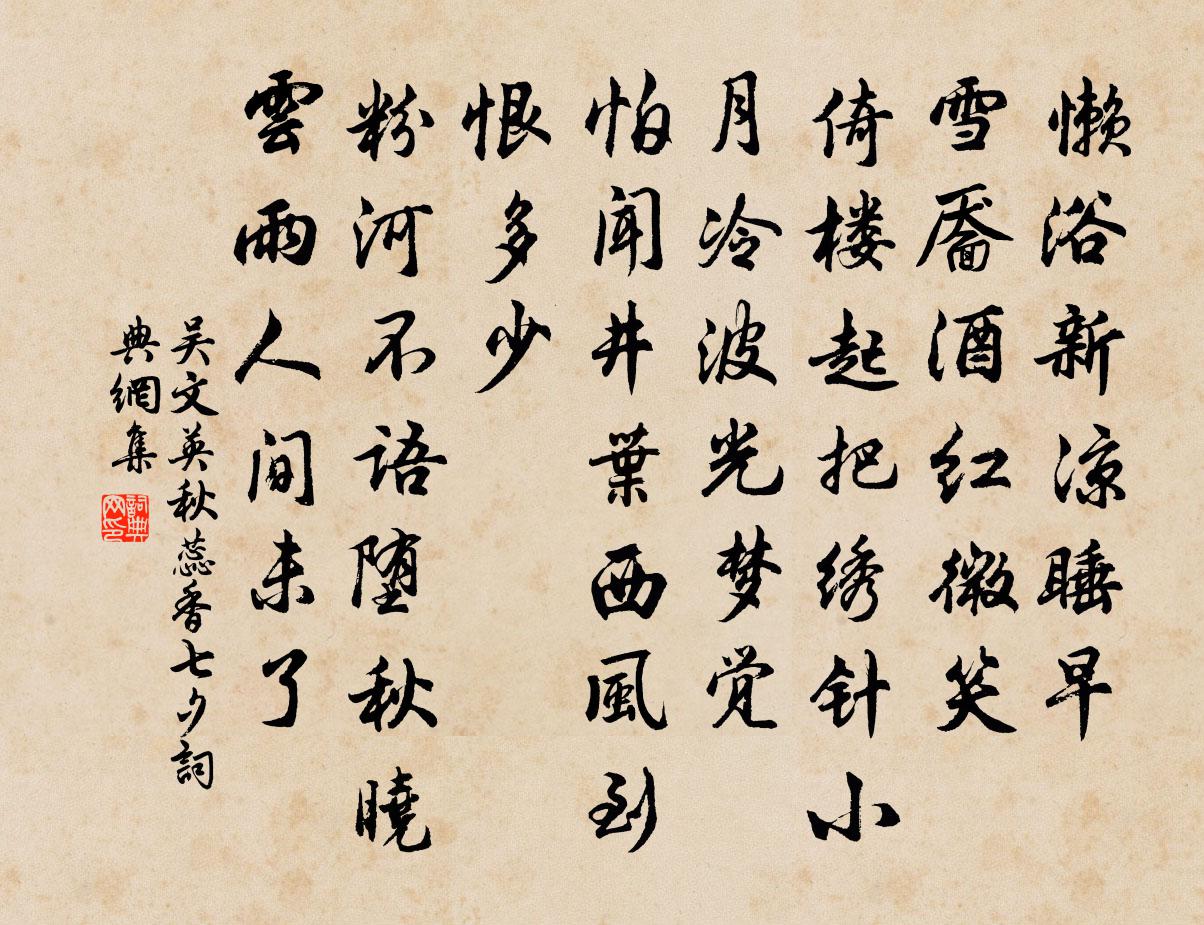 懒浴新凉睡早
雪靥酒红微笑
倚楼起把绣针小
月冷波光梦觉
怕闻井葉西風到
恨多少
粉河不语堕秋曉
雲雨人间未了
吴文英秋蕊香七夕詞
典網集
詞典網印